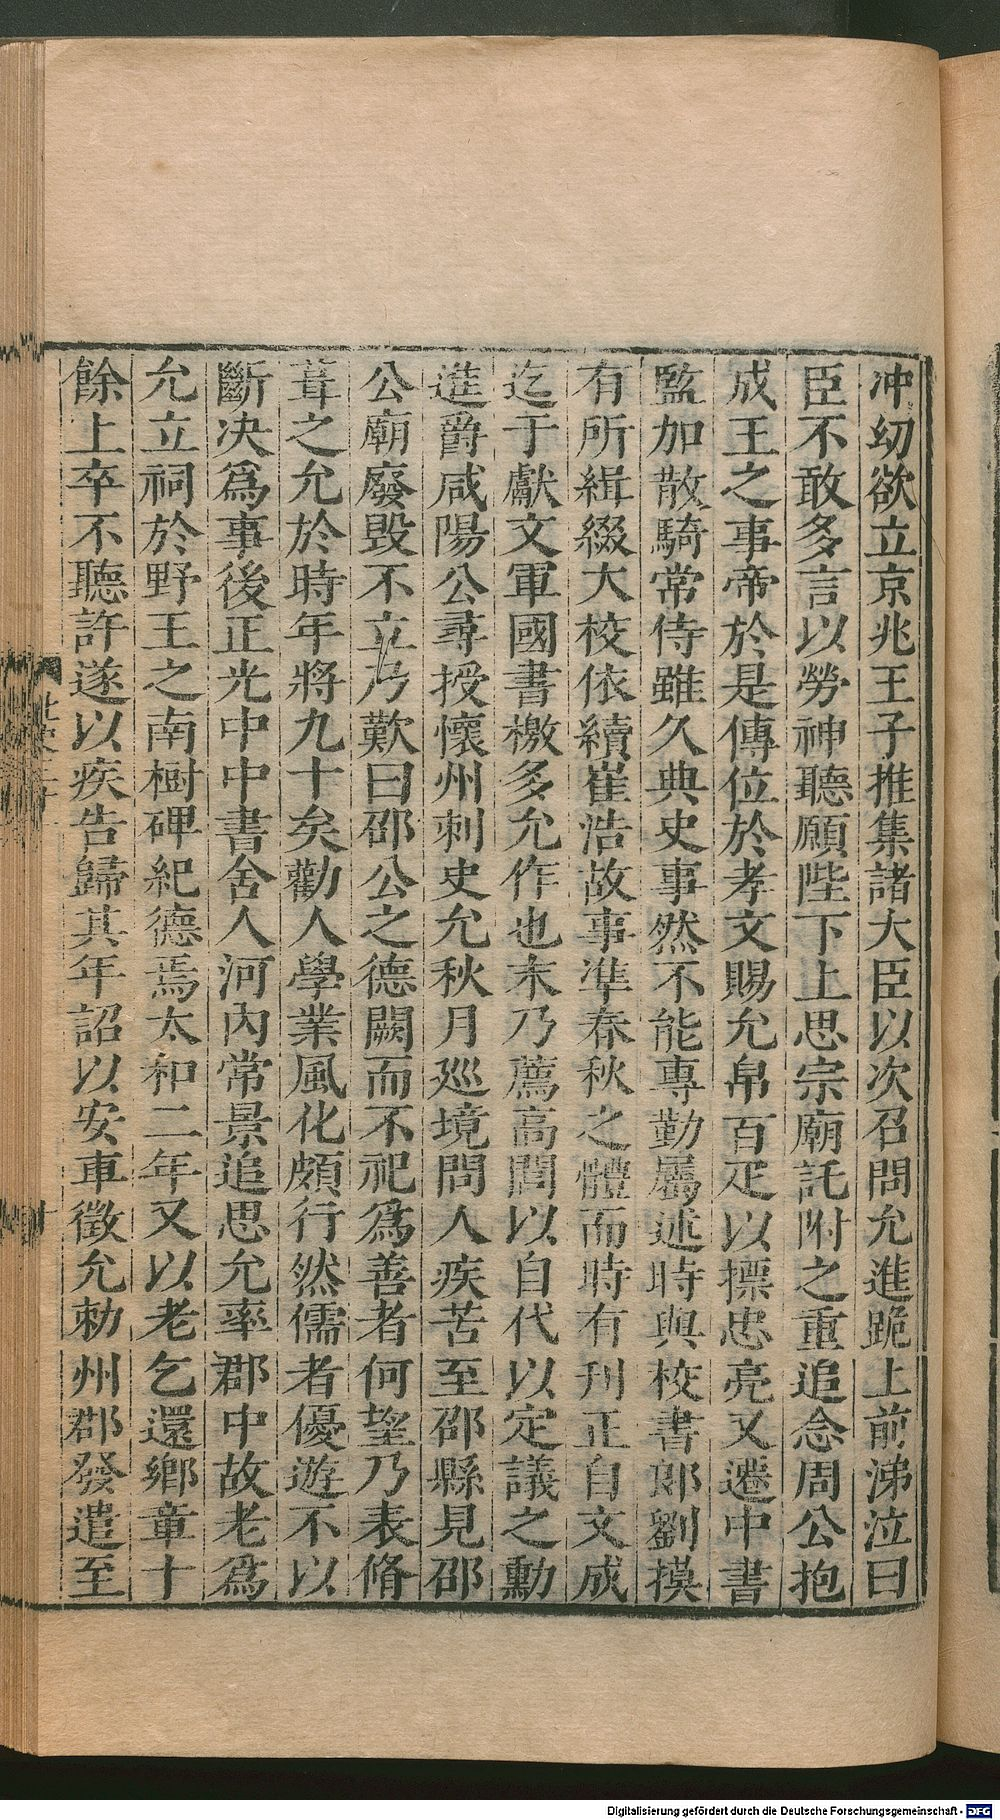 冲幼欲立京兆王子推集諸大臣以次召問允進跪上前涕泣曰
臣不敢多言以勞神聽願陛下上思宗廟託附之重追念周公抱
成王之事帝於是傳位於孝文賜允帛百疋以摽忠亮又遷中書
監加散騎常侍雖久典史事然不能專勤屬述時與校書郎劉摸
有所緝綴大校依續崔浩故事準春秋之體而時有刊正自文成
迄于獻文軍國書檄多允作也末乃薦高閭以自代以定議之勳
進爵咸陽公尋授懷州刺史允秋月廵境問人疾苦至邵縣見邵
公廟廢毀不立乃歎曰邵公之德闕而不祀爲善者何望乃表脩
葺之允於時年將九十矣勸人學業風化頗行然儒者優遊不以
斷决爲事後正光中中書舍人河內常景追思允率郡中故老爲
允立祠於野王之南樹碑紀德焉太和二年又以老乞還鄉章十
餘上卒不聽許遂以疾告歸其年詔以安車徵允勑州郡發遣至
Digitalisierung gefördert durch die Deutsche Forschungsgemeinschaft - DFG